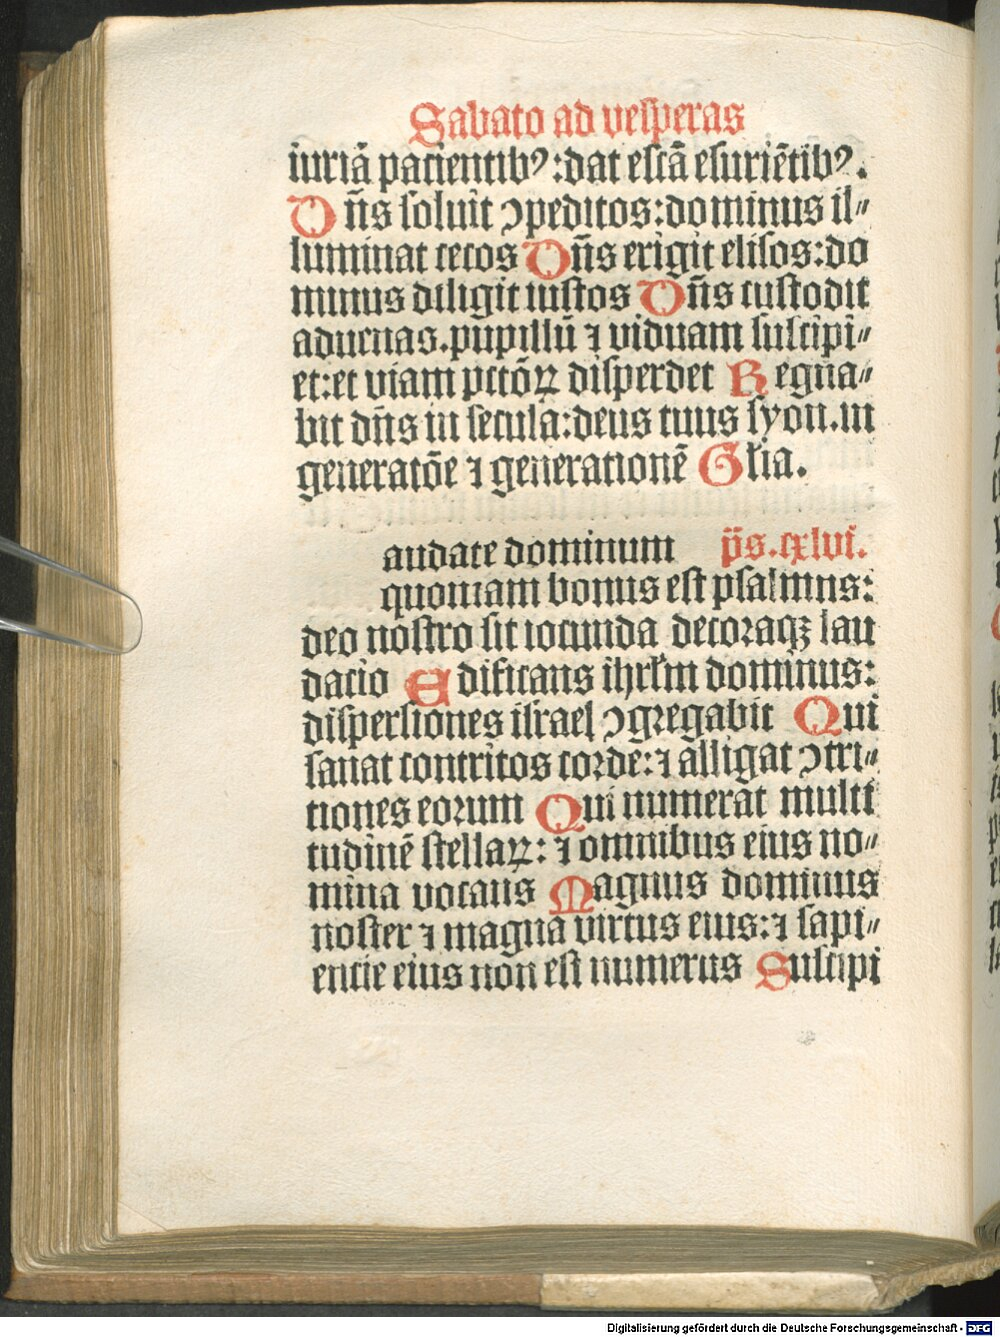 Sabato ad vesperas
iuriā pacientibꝰ: dat escā esuriētibꝰ.
Dn̄s soluit ꝯpeditos: dominus il⸗
luminat cecos Dn̄s erigit elisos: do
minus diligit iustos Dn̄s custodit
aduenas. pupillū ⁊ viduam suscipi⸗
et: et viam pctōꝝ disperdet Regna⸗
bit dn̄s in secula: deus tuus syon. in
generatōe ⁊ generationē Gl̄ia.
audate dominum ps̄. cxlvi.
quoniam bonus est psalmus:
deo nostro sit iocunda decoraqꝫ lau
dacio Edificans ihrl̄m dominus:
dispersiones isr̄ael ꝯgregabit Qui
sanat contritos corde: ⁊ alligat ꝯtri⸗
tiones eorum Qui numerat multi
tudinē stellaꝝ: ⁊ omnibus eius no⸗
mina vocans Magnus dominus
noster ⁊ magna virtus eius: ⁊ sapi⸗
entie eius non est numerus Suscipi
Digitalisierung gefördert durch die Deutsche Forschungsgemeinschaft - DFG